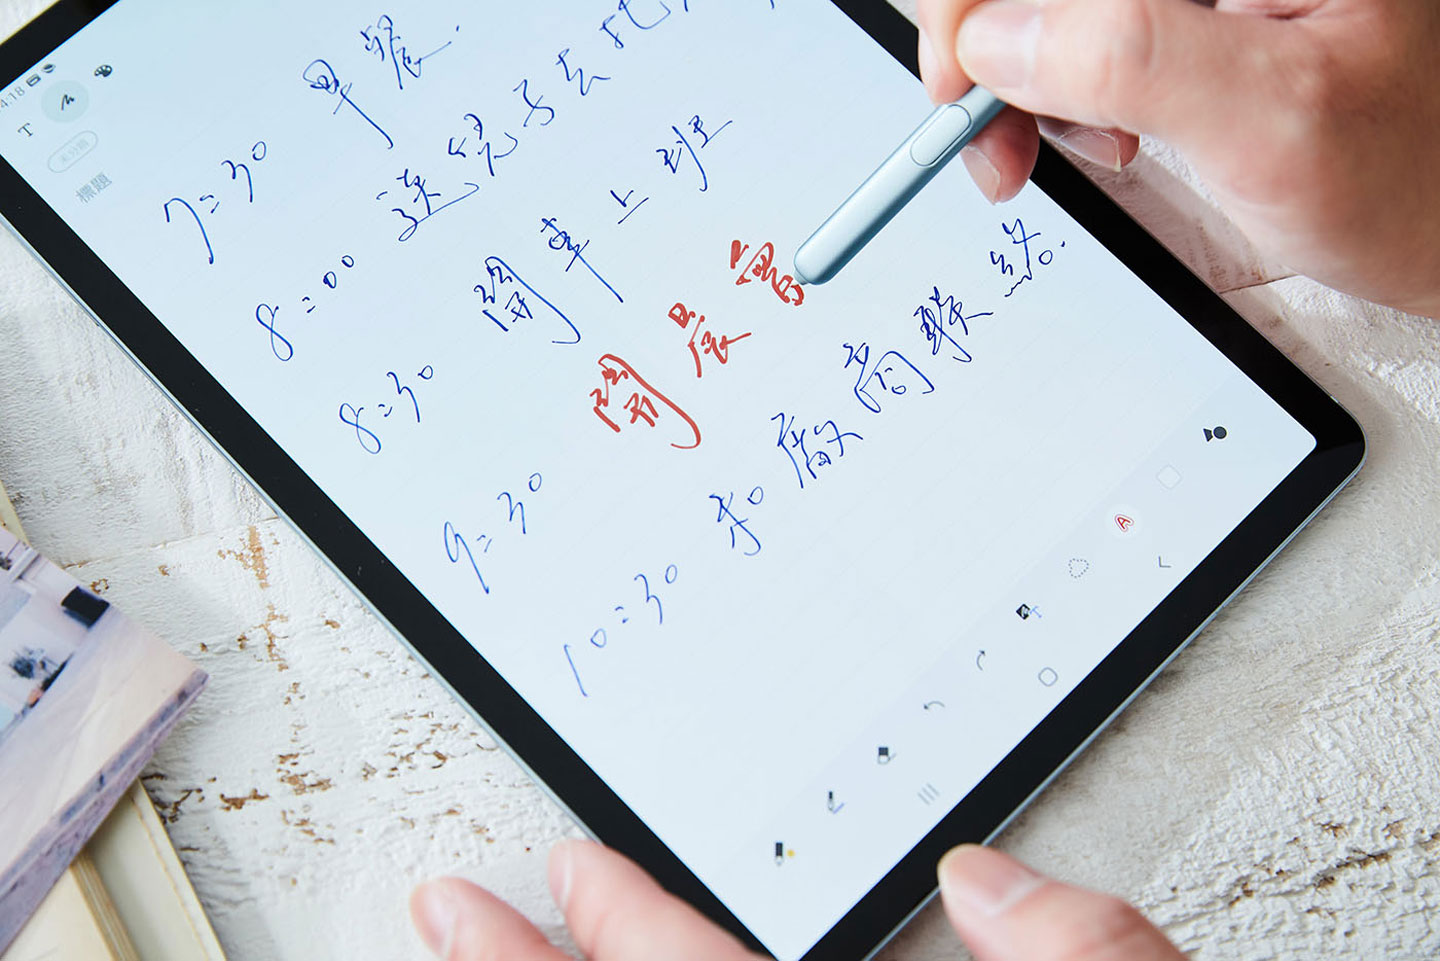 4:18
T
未分類
標題
7:30 早餐.
8:00 送兒子去
8:30 開車上班
9:30 開晨會
10:30 和廠商聯絡.
A
T